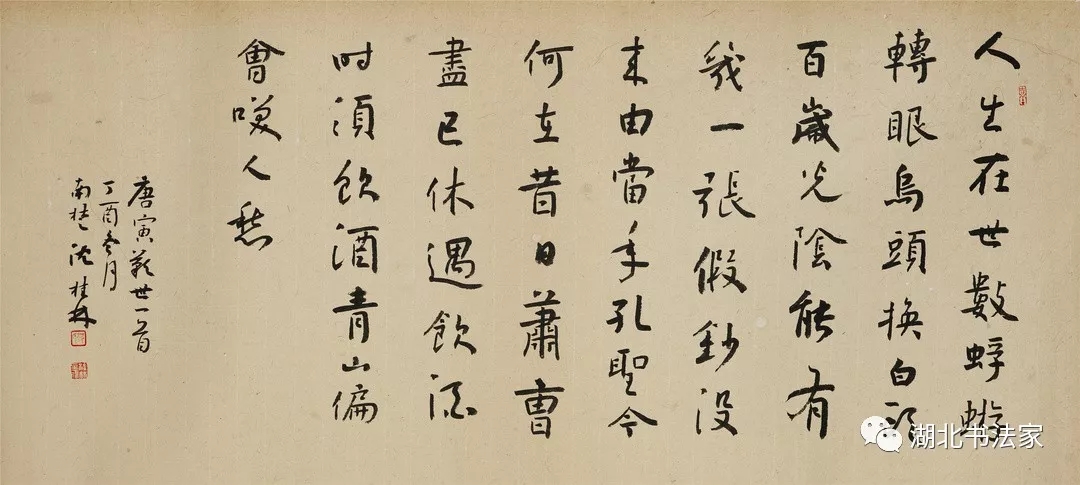 人生在世數蜉蝣
轉眼烏頭換白頭
百歲光陰能有
幾一張假鈔没
来由當年孔聖今
何在昔日蕭曹
盡已休遇飲酒
时須飲酒青山偏
會咲人愁
唐寅歎世一首
丁酉冬月
南楚沈桂林
湖北书法家